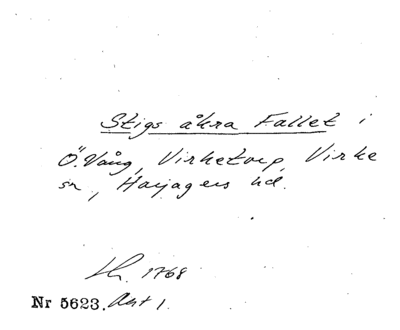 Stigs åkra Fallet i
Ö. Vång, Virketorp, Virke
sn, Harjagers hd.
Lh. 1768
Nr 5623. Akt 1.